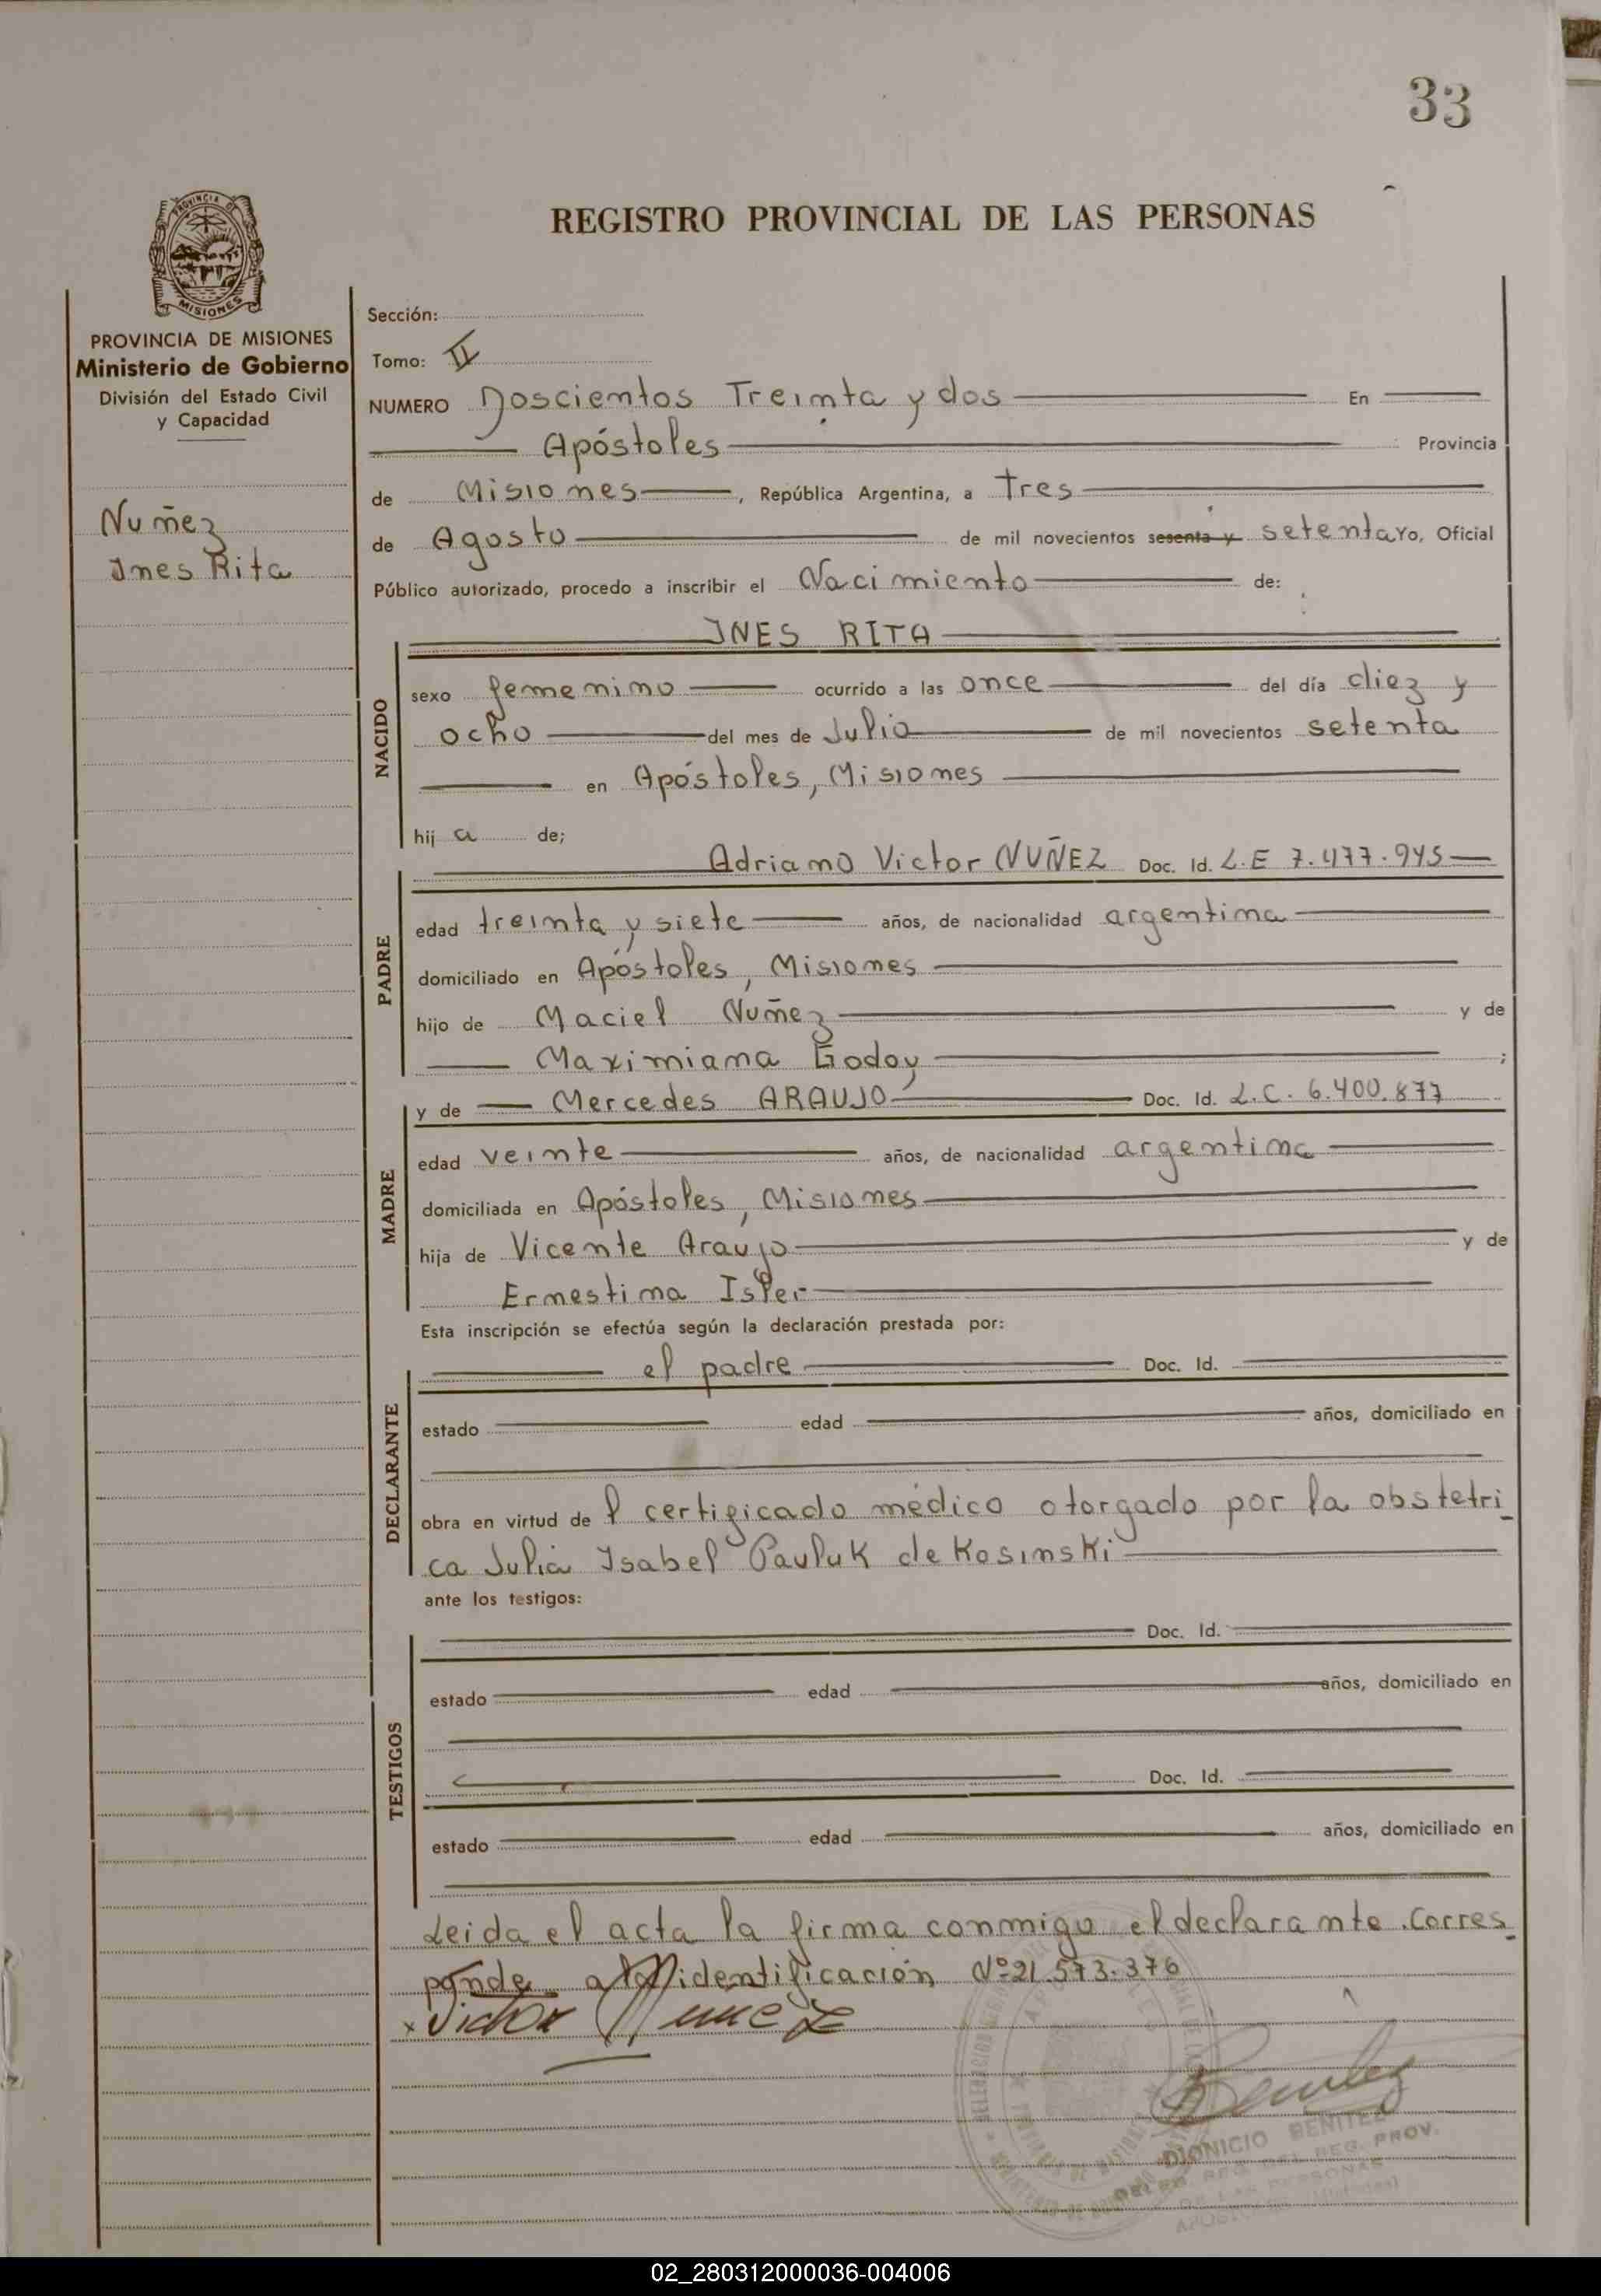 33
REGISTRO PROVINCIAL DE LAS PERSONAS
PROVINCIA DE MISIONES
PROVINCIA DE MISIONES
Ministerio de Gobierno
División del Estado Civil
y Capacidad
Nuñez
Ines Rita
Sección:
Tomo: II
NUMERO Doscientos Treinta y dos En
Apóstoles Provincia
de Misiones, República Argentina, a tres
de Agosto de mil novecientos sesenta y setenta Yo, Oficial
Público autorizado, procedo a inscribir el Nacimiento de:
INES RITA
NACIDO
sexo femenino ocurrido a las once del día diez y
ocho del mes de Julio de mil novecientos setenta
en Apóstoles, Misiones
hij a de;
PADRE
Adriano Victor NUÑEZ Doc. Id. L.E 7.477.945
edad treinta y siete años, de nacionalidad argentina
domiciliado en Apóstoles, Misiones
hijo de Maciel Nuñez y de
Maximiana Godoy;
MADRE
y de Mercedes ARAUJO Doc. Id. L.C. 6.400.877
edad veinte años, de nacionalidad argentina
domiciliada en Apóstoles, Misiones
hija de Vicente Araujo y de
Ernestina Isler
Esta inscripción se efectúa según la declaración prestada por:
DECLARANTE
el padre Doc. Id.
estado edad años, domiciliado en
obra en virtud de l certificado médico otorgado por la obstetri
ca Julia Isabel Pauluk de Kosinski
ante los testigos:
TESTIGOS
Doc. Id.
estado edad años, domiciliado en
Doc. Id.
estado edad años, domiciliado en
Leida el acta la firma conmigo el declarante. Corres
ponde a la identificación Nº 21.573.376
x Victor Nuñez
Benitez
DIONICIO BENITEZ
DEL REG. PROV.
DE LAS PERSONAS
02_280312000036-004006